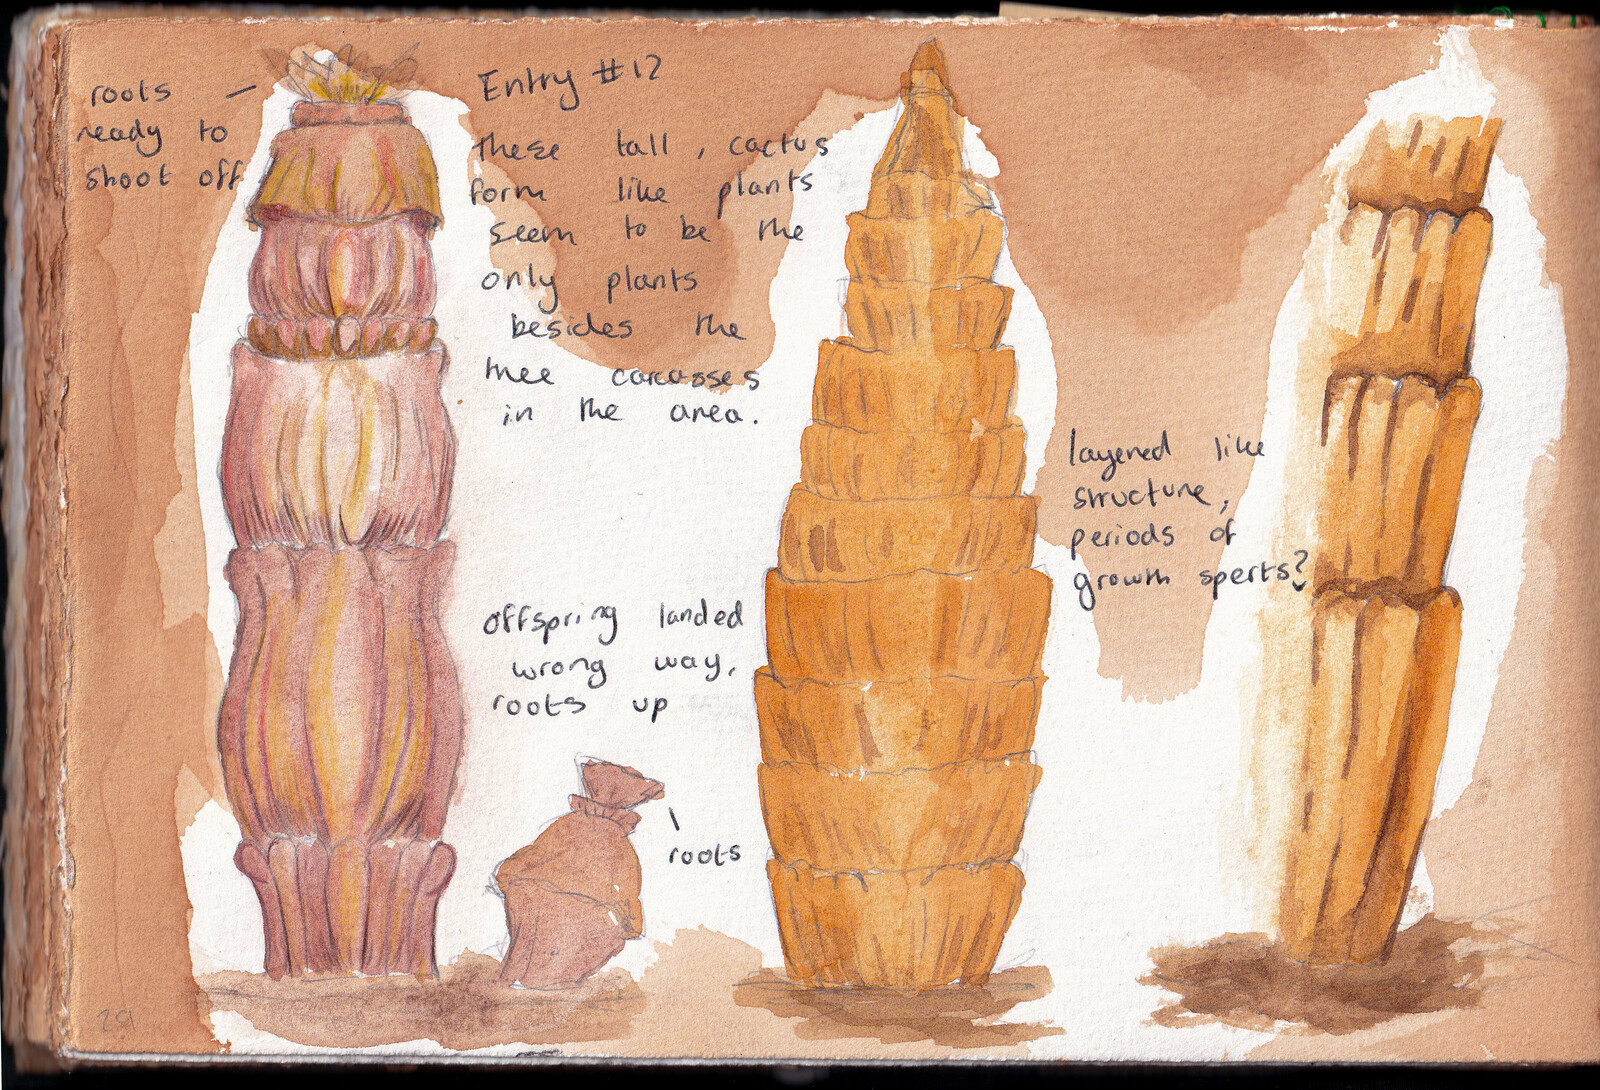 roots
ready to
shoot off
Entry #12
These tall, cactus
form like plants
seem to be the
only plants
besides the
tree carcasses
in the area.
layered like
structure,
periods of
growth sperts?
offspring landed
wrong way,
roots up
roots
29